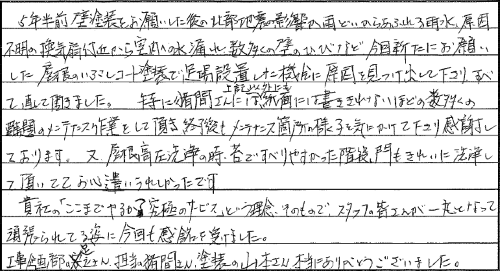 5年半前壁塗装をお願いした後の北部地震の影響か雨どいからあふれる雨水、原因
不明の換気扇付近から室内への水漏れ、数多くの壁のひびなど今回新たにお願い
した屋根のいぶしコート塗装で足場設置した機会に原因を見つけ出して下さり、すべ
て直して頂きました。 特に猪間さんには 上記以外にも 紙面には書ききれないほどの数多くの
難関のメンテナンス作業をして頂き終了後もメンテナンス箇所の様子を気にかけて下さり感謝し
ております。又、屋根高圧洗浄の時、苔ですべりやすかった階段、門もきれいに洗浄し
て頂いてお心遣いうれしかったです
貴社の「ここまでやるの?究極のサービス」という理念、そのもので、スタッフの皆さんが一丸となって
頑張られてる姿に今回も感銘を受けました。
工事企画部の さん、担当の猪間さん、塗装の山本さん本当にありがとうございました。